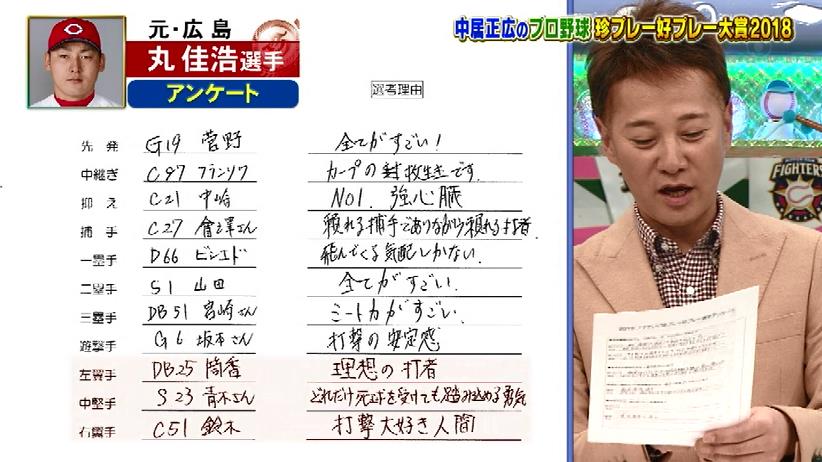 元・広島
丸 佳浩選手
アンケート
中居正広のプロ野球 珍プレー好プレー大賞2018
選考理由
先発 G19 菅野 全てがすごい!
中継ぎ C97 フランソワ カープの救世主です.
抑え C21 中﨑 NO1. 強心臓
捕手 C27 會澤さん 頼れる捕手でありながら頼れる打者.
一塁手 D66 ビシエド 飛んでくる気配しかない.
二塁手 S1 山田 全てがすごい.
三塁手 DB51 宮﨑さん ミート力がすごい.
遊撃手 G6 坂本さん 打撃の安定感
左翼手 DB25 筒香 理想の打者
中堅手 S23 青木さん どれだけ死球を受けても踏み込める勇気
右翼手 C51 鈴木 打撃大好き人間
FIGHTERS